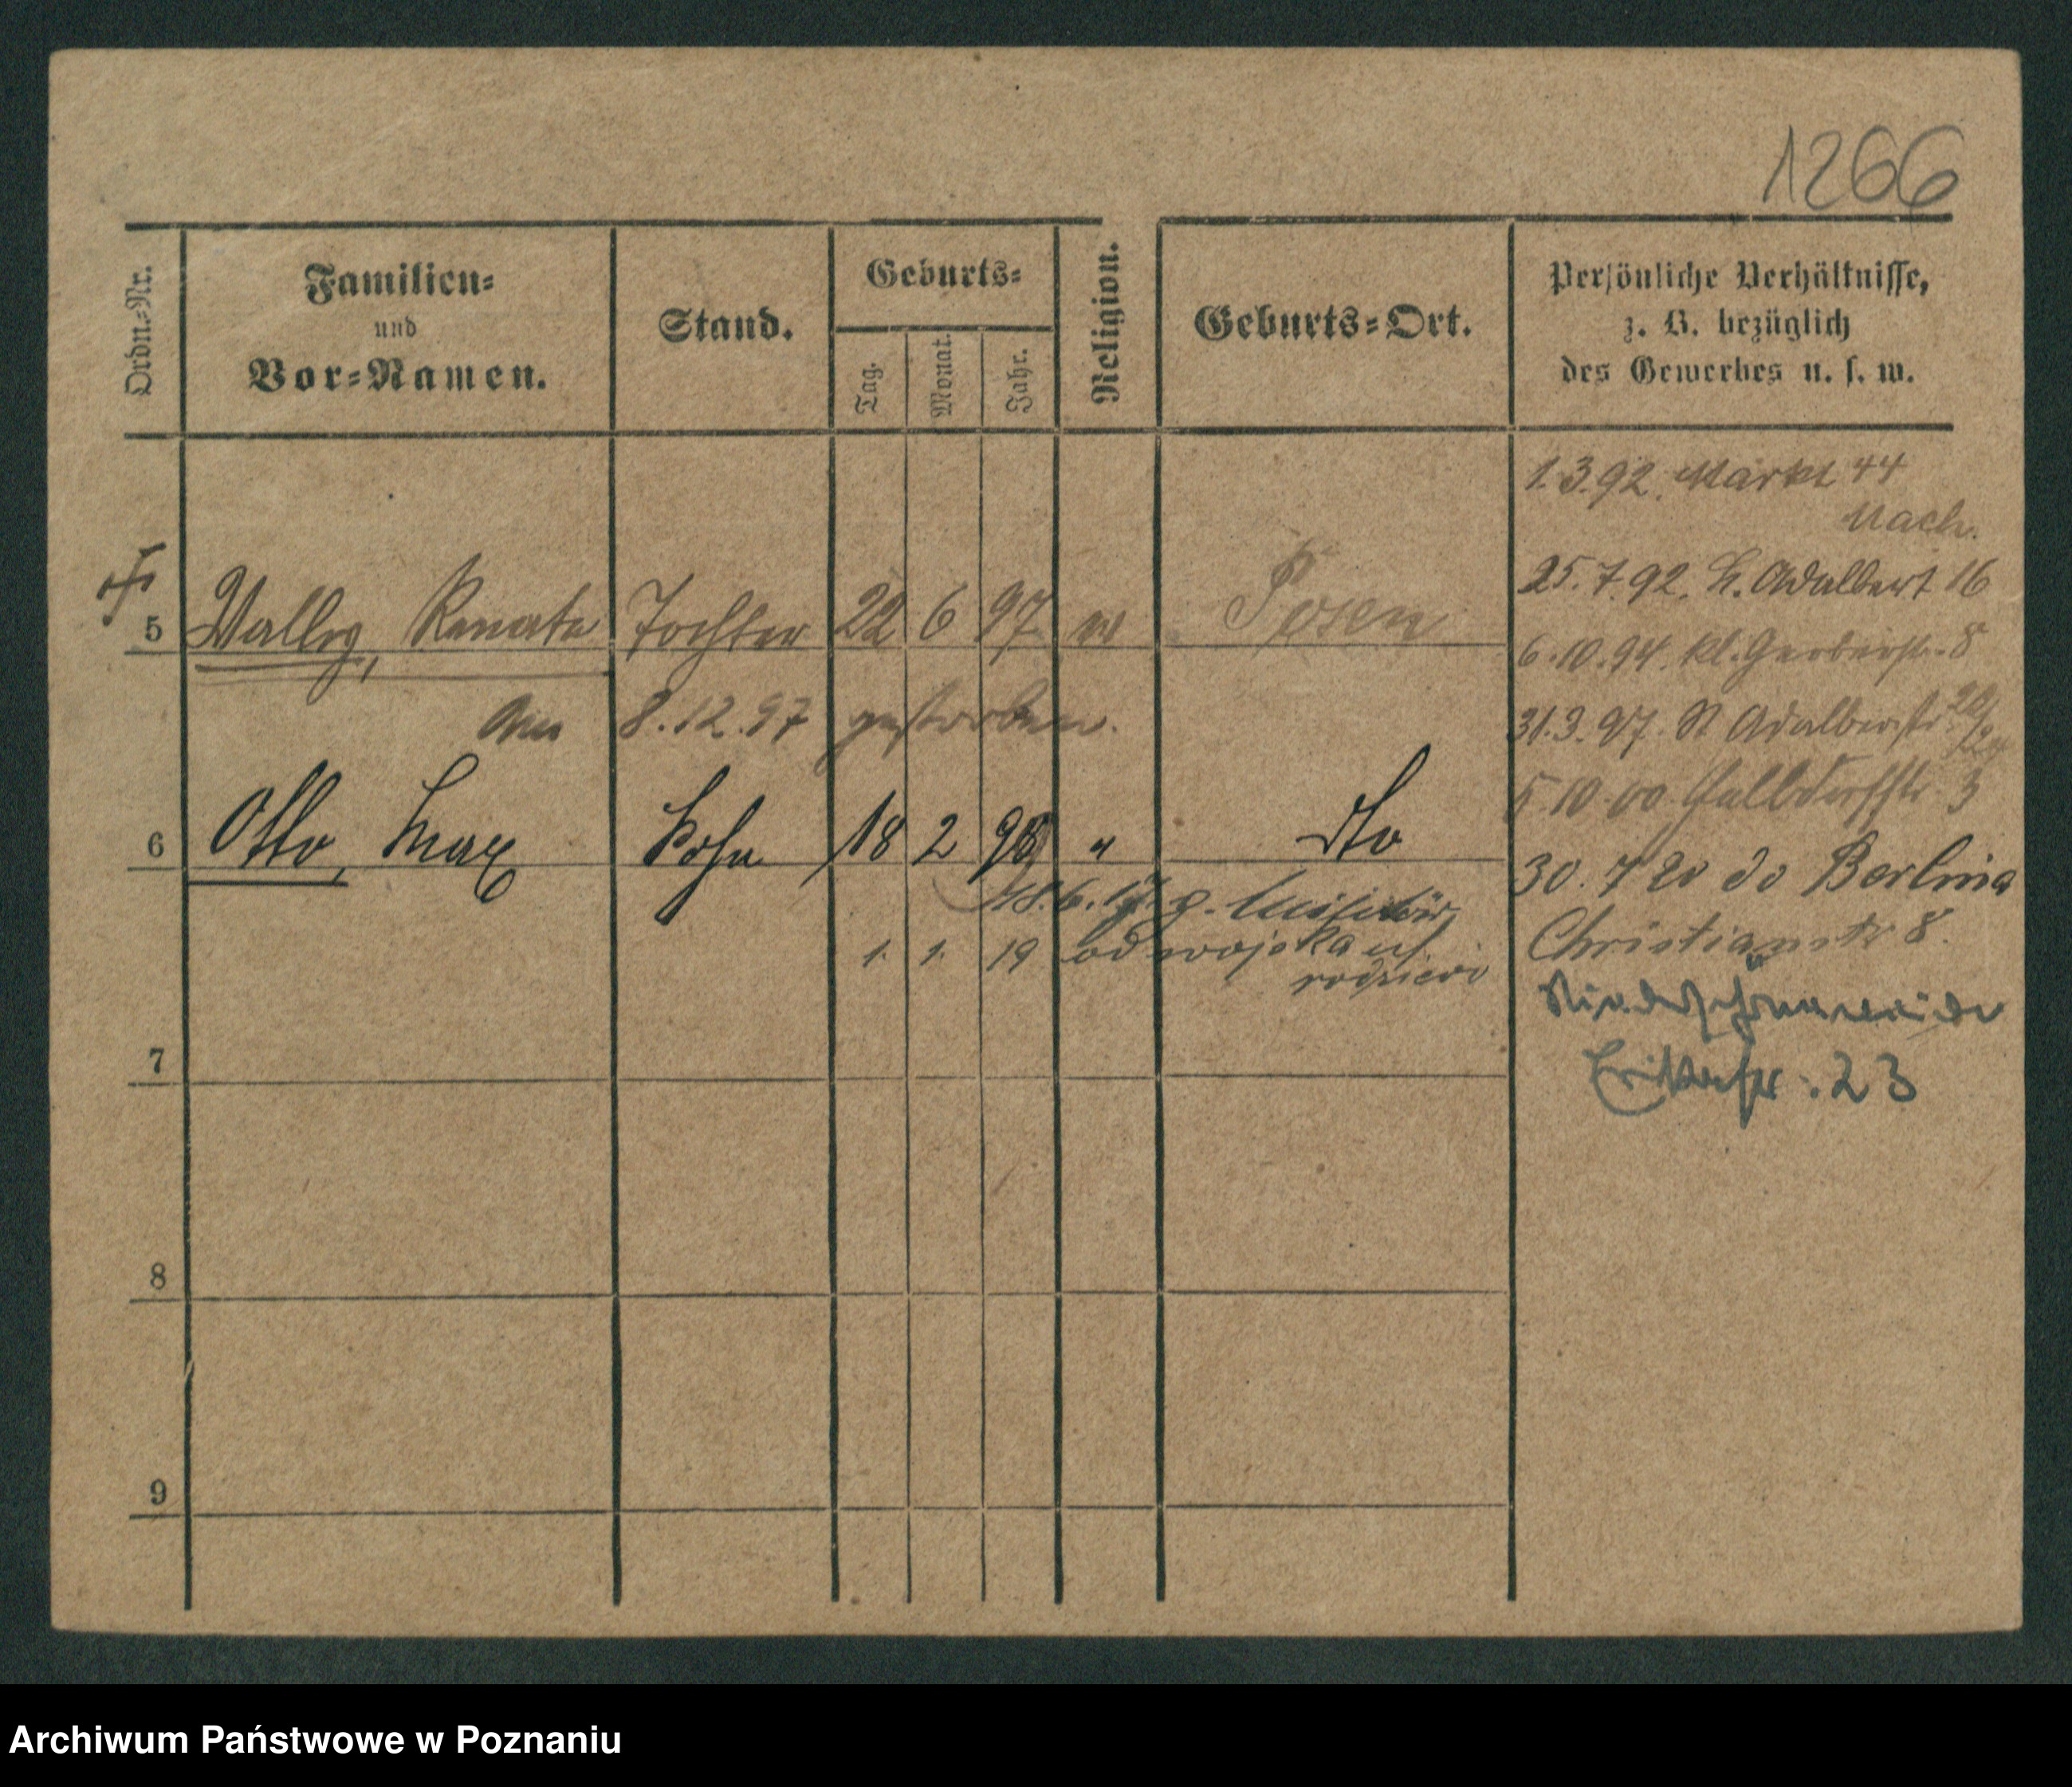 1266
Ordn.-Nr.
Familien-
und
Vor-Namen.
Stand.
Geburts-
Tag.
Monat.
Jahr.
Religion.
Geburts-Ort.
Persönliche Verhältnisse,
z. B. bezüglich
des Gewerbes u. s. w.
1.3.92. Markt 44
25.7.92. St. Adalbert 16
5 Wally, Renate Tochter 22 6 97 Posen
6.10.94. Kl. Gerberstr. 8
am 8.12.97 gestorben.
31.3.97. St Adalbertstr
5.10.00 3
6 Otto, Max Sohn 18 2 98 " dto
30.7 20 do Berlina
18.6.17 z. Militär
Christianstr 8.
1. 1. 19 od wojska
rodziców
Niederschöneweide
: 23
7
8
9
Archiwum Państwowe w Poznaniu